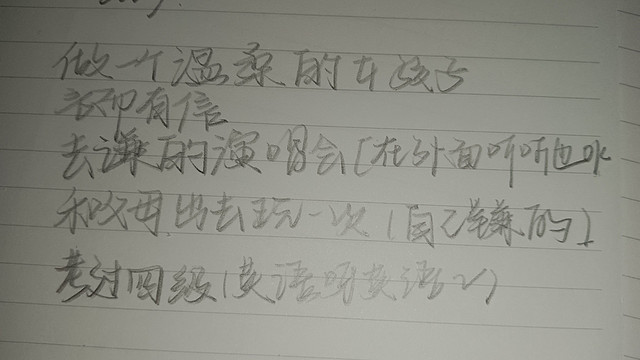 做一个温柔的女孩子
言而有信
去谦的演唱会(在外面听听也
和父母出去玩一次(自己赚的)
考过四级(英语呀英语~)